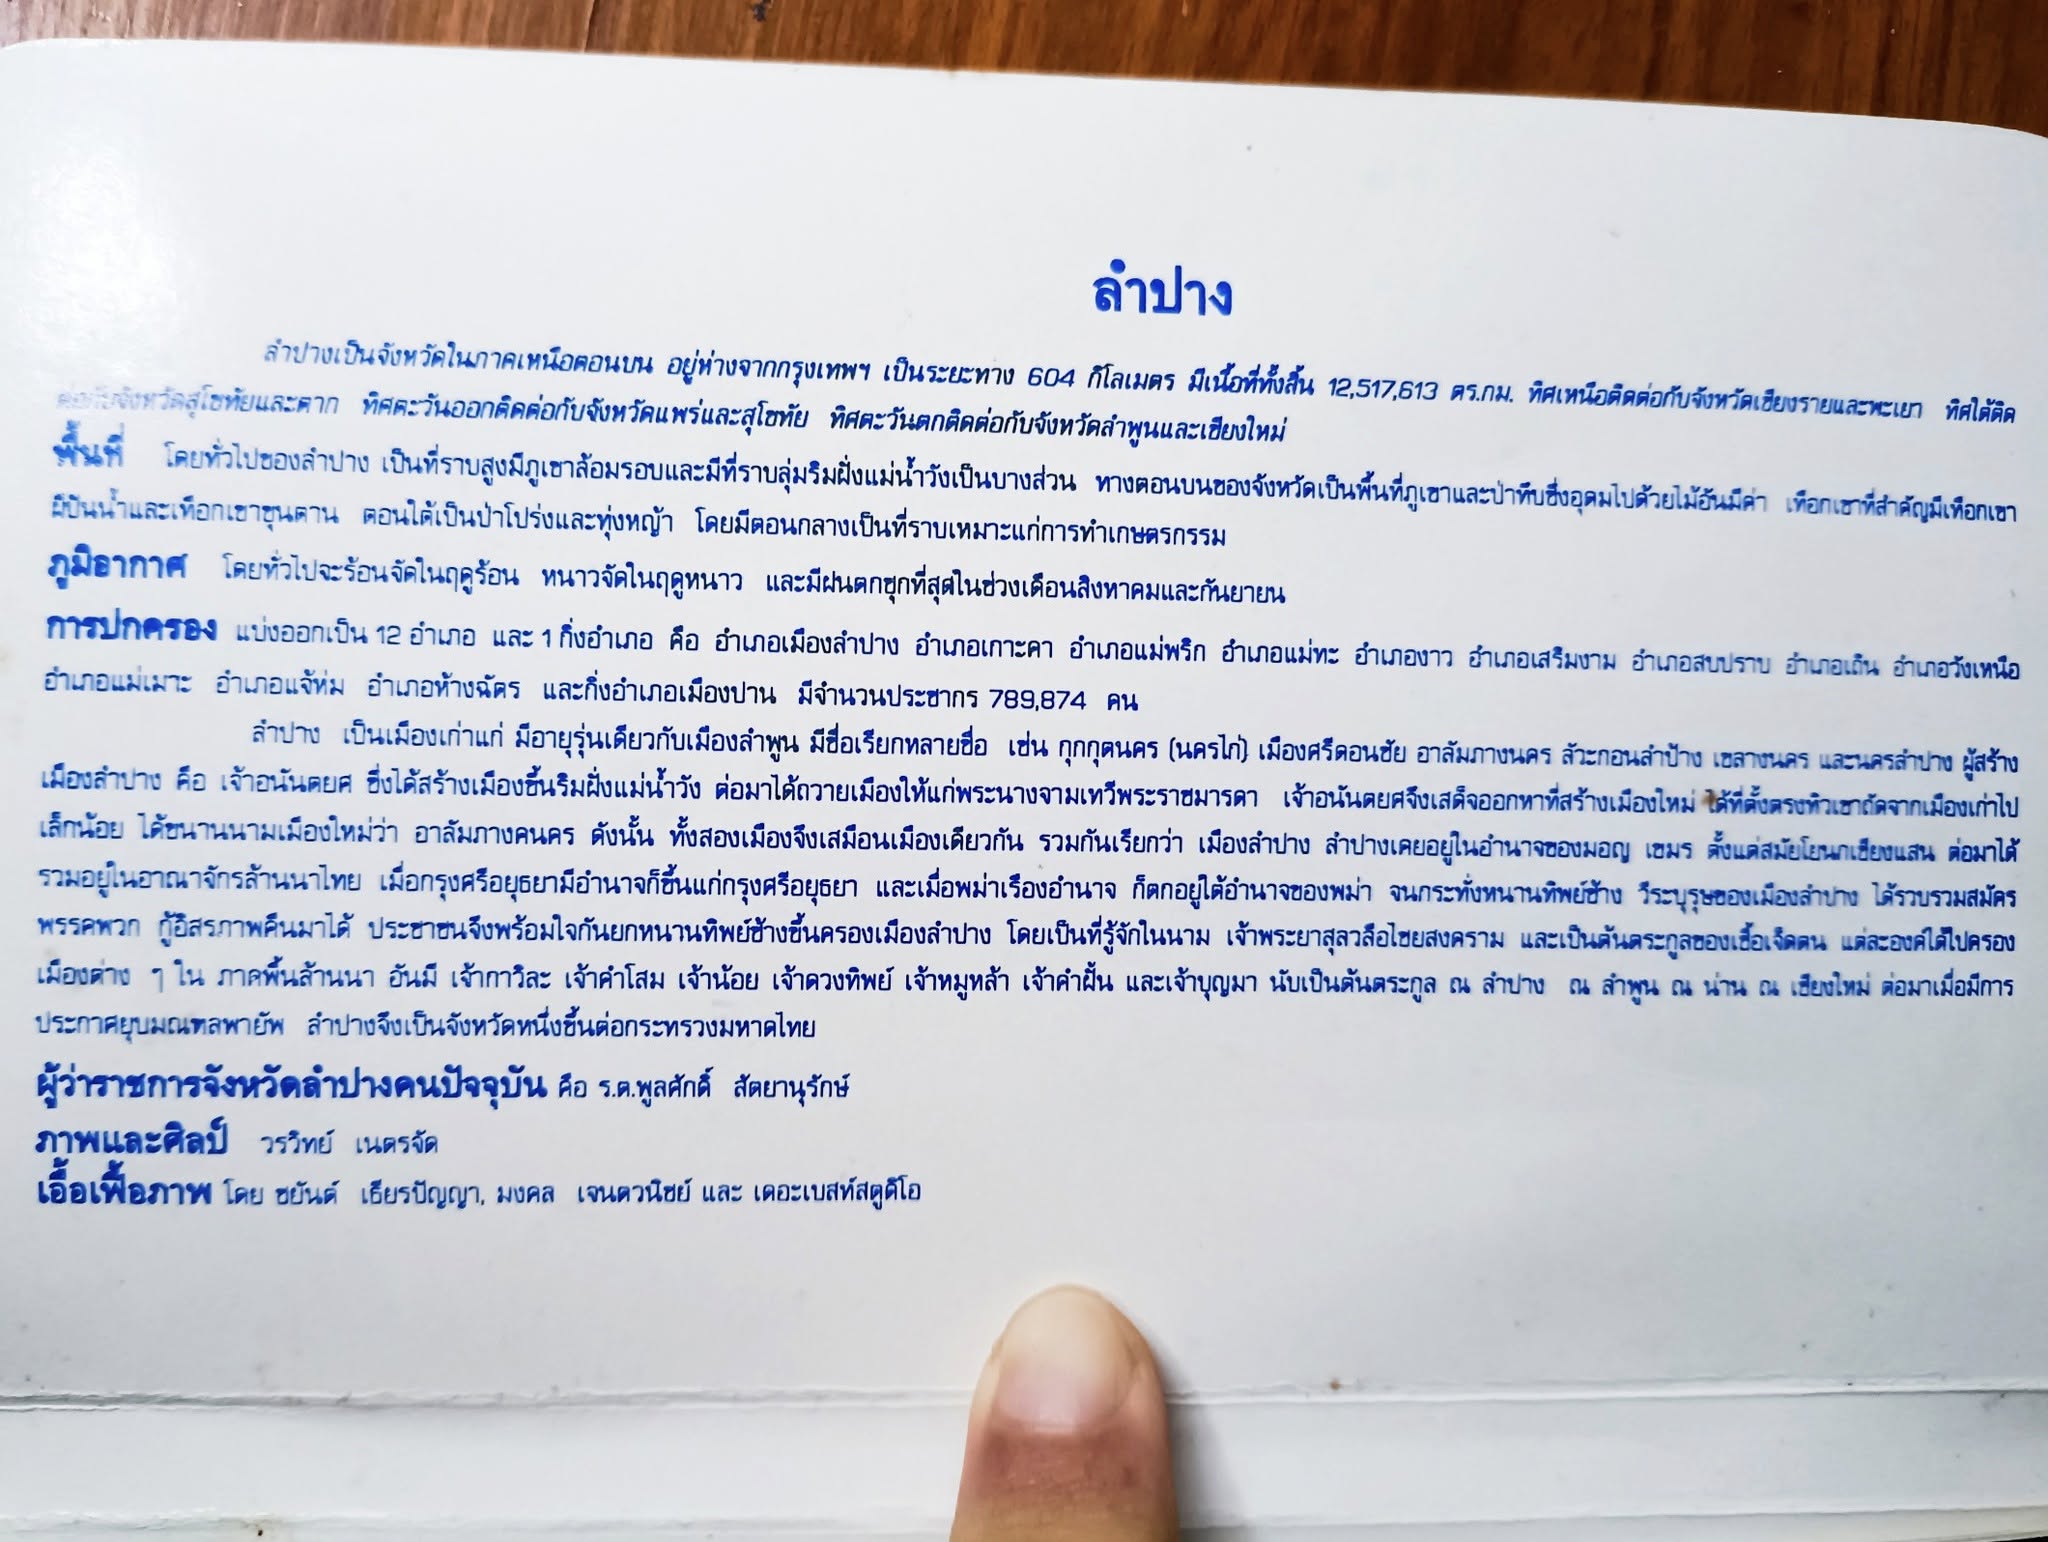 ลำปาง
ลำปางเป็นจังหวัดในภาคเหนือตอนบน อยู่ห่างจากกรุงเทพฯ เป็นระยะทาง 604 กิโลเมตร มีเนื้อที่ทั้งสิ้น 12,517,613 ตร.กม. ทิศเหนือติดต่อกับจังหวัดเชียงรายและพะเยา ทิศใต้ติด
ต่อกับจังหวัดสุโขทัยและตาก ทิศตะวันออกติดต่อกับจังหวัดแพร่และสุโขทัย ทิศตะวันตกติดต่อกับจังหวัดลำพูนและเชียงใหม่
พื้นที่ โดยทั่วไปของลำปาง เป็นที่ราบสูงมีภูเขาล้อมรอบและมีที่ราบลุ่มริมฝั่งแม่น้ำวังเป็นบางส่วน ทางตอนบนของจังหวัดเป็นพื้นที่ภูเขาและป่าทึบซึ่งอุดมไปด้วยไม้อันมีค่า เทือกเขาที่สำคัญมีเทือกเขา
ผีปันน้ำและเทือกเขาขุนตาน ตอนใต้เป็นป่าโปร่งและทุ่งหญ้า โดยมีตอนกลางเป็นที่ราบเหมาะแก่การทำเกษตรกรรม
ภูมิอากาศ โดยทั่วไปจะร้อนจัดในฤดูร้อน หนาวจัดในฤดูหนาว และมีฝนตกชุกที่สุดในช่วงเดือนสิงหาคมและกันยายน
การปกครอง แบ่งออกเป็น 12 อำเภอ และ 1 กิ่งอำเภอ คือ อำเภอเมืองลำปาง อำเภอเกาะคา อำเภอแม่พริก อำเภอแม่ทะ อำเภองาว อำเภอเสริมงาม อำเภอสบปราบ อำเภอเถิน อำเภอวังเหนือ
อำเภอแม่เมาะ อำเภอแจ้ห่ม อำเภอห้างฉัตร และกิ่งอำเภอเมืองปาน มีจำนวนประชากร 789,874 คน
ลำปาง เป็นเมืองเก่าแก่ มีอายุรุ่นเดียวกับเมืองลำพูน มีชื่อเรียกหลายชื่อ เช่น กุกกุตนคร (นครไก่) เมืองศรีดอนชัย อาลัมภางนคร ลัวะกอนลำป้าง เขลางนคร และนครลำปาง ผู้สร้าง
เมืองลำปาง คือ เจ้าอนันตยศ ซึ่งได้สร้างเมืองขึ้นริมฝั่งแม่น้ำวัง ต่อมาได้ถวายเมืองให้แก่พระนางจามเทวีพระราชมารดา เจ้าอนันตยศจึงเสด็จออกหาที่สร้างเมืองใหม่ ได้ที่ตั้งตรงทิวเขาถัดจากเมืองเก่าไป
เล็กน้อย ได้ขนานนามเมืองใหม่ว่า อาลัมภางคนคร ดังนั้น ทั้งสองเมืองจึงเสมือนเมืองเดียวกัน รวมกันเรียกว่า เมืองลำปาง ลำปางเคยอยู่ในอำนาจของมอญ เขมร ตั้งแต่สมัยโยนกเชียงแสน ต่อมาได้
รวมอยู่ในอาณาจักรล้านนาไทย เมื่อกรุงศรีอยุธยามีอำนาจก็ขึ้นแก่กรุงศรีอยุธยา และเมื่อพม่าเรืองอำนาจ ก็ตกอยู่ใต้อำนาจของพม่า จนกระทั่งหนานทิพย์ช้าง วีระบุรุษของเมืองลำปาง ได้รวบรวมสมัคร
พรรคพวก กู้อิสรภาพคืนมาได้ ประชาชนจึงพร้อมใจกันยกหนานทิพย์ช้างขึ้นครองเมืองลำปาง โดยเป็นที่รู้จักในนาม เจ้าพระยาสุลวลือไชยสงคราม และเป็นต้นตระกูลของเชื้อเจ็ดตน แต่ละองค์ได้ไปครอง
เมืองต่าง ๆ ใน ภาคพื้นล้านนา อันมี เจ้ากาวิละ เจ้าคำโสม เจ้าน้อย เจ้าดวงทิพย์ เจ้าหมูหล้า เจ้าคำฝั้น และเจ้าบุญมา นับเป็นต้นตระกูล ณ ลำปาง ณ ลำพูน ณ น่าน ณ เชียงใหม่ ต่อมาเมื่อมีการ
ประกาศยุบมณฑลพายัพ ลำปางจึงเป็นจังหวัดหนึ่งขึ้นต่อกระทรวงมหาดไทย
ผู้ว่าราชการจังหวัดลำปางคนปัจจุบัน คือ ร.ต.พูลศักดิ์ สัตยานุรักษ์
ภาพและศิลป์ วรวิทย์ เนตรจัด
เอื้อเฟื้อภาพ โดย ชยันต์ เธียรปัญญา, มงคล เจนตวนิชย์ และ เดอะเบสท์สตูดิโอ